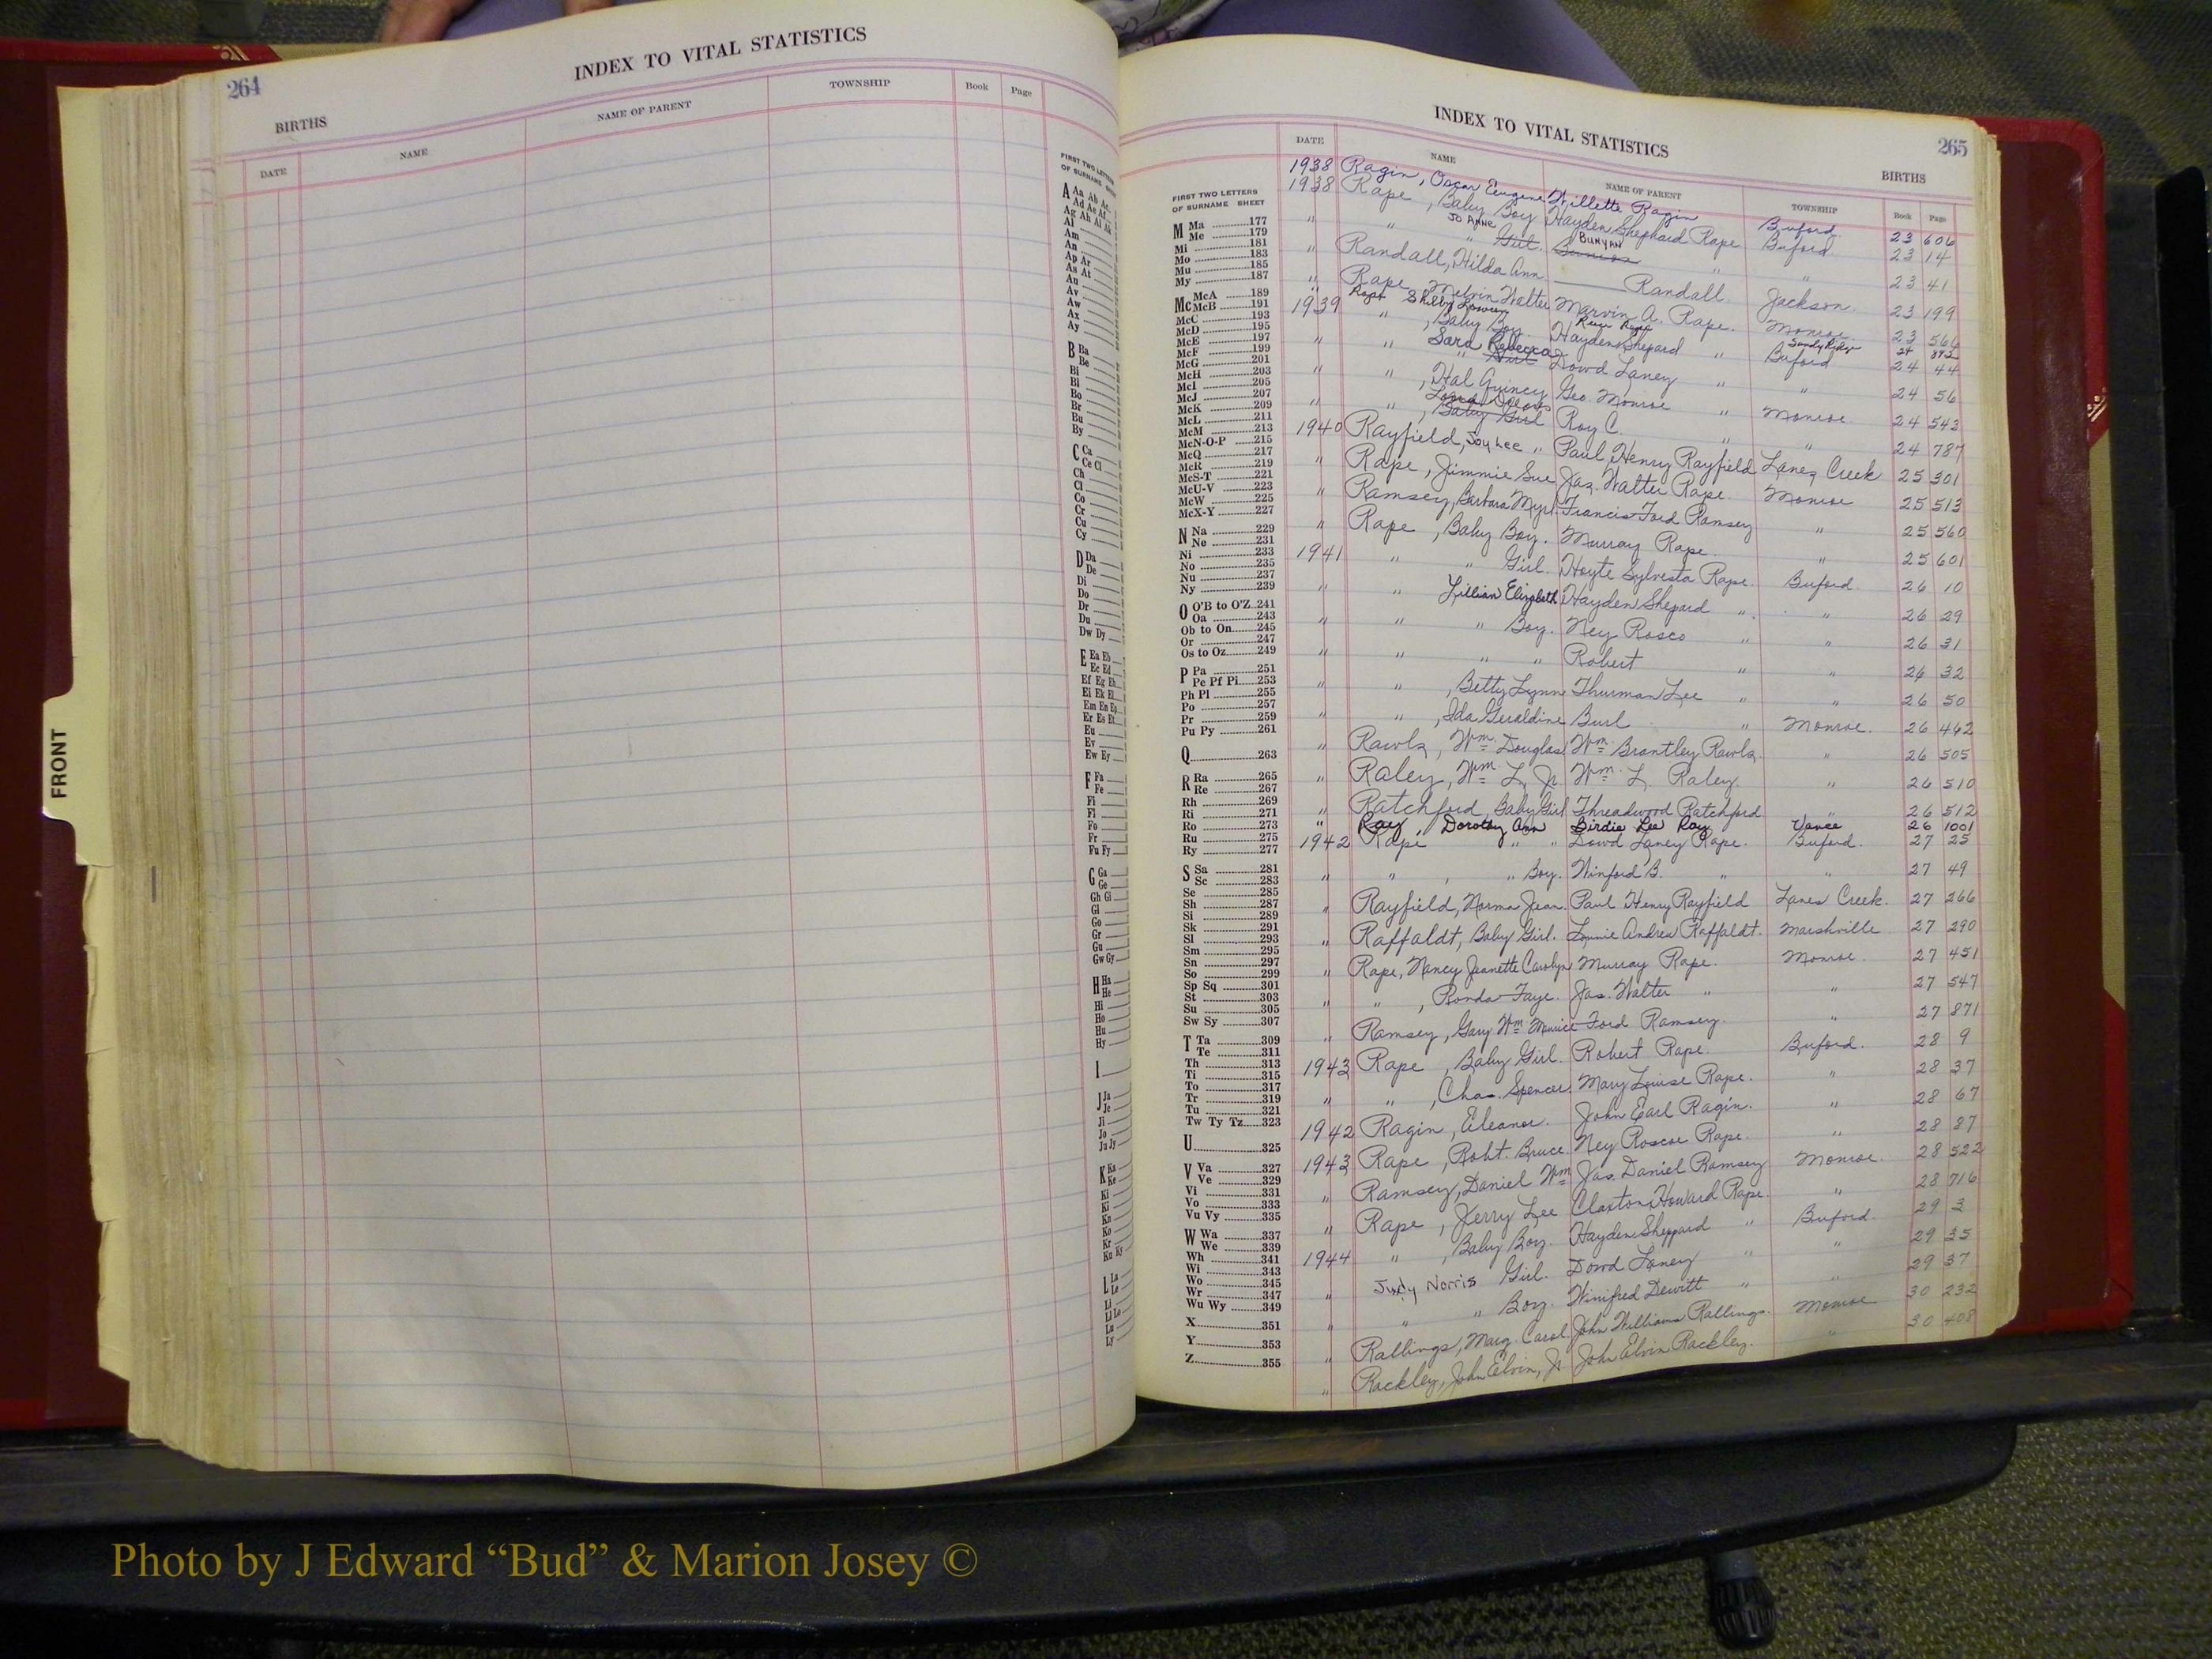 264
INDEX TO VITAL STATISTICS
BIRTHS
DATE NAME NAME OF PARENT TOWNSHIP Book Page
FIRST TWO LETTERS
OF SURNAME
A Aa Ab Ac
Ad Ae Af
Ag Ah Ai Ak
Al
Am
An
Ap Ar
As At
Au
Av
Aw
Ax
Ay
B Ba
Be
Bi
Bl
Bo
Br
Bu
By
C Ca
Ce Ci
Ch
Cl
Co
Cr
Cu
Cy
D Da
De
Di
Do
Dr
Du
Dw Dy
E Ea Eb
Ec Ed
Ef Eg Eh
Ei Ek El
Em En Ep
Er Es Et
Eu
Ev
Ew Ey
F Fa
Fe
Fi
Fl
Fo
Fr
Fu Fy
G Ga
Ge
Gh Gi
Gl
Go
Gr
Gu
Gw Gy
H Ha
He
Hi
Ho
Hu
Hy
I
J Ja
Je
Ji
Jo
Ju Jy
K Ka
Ke
Ki
Kl
Kn
Ko
Kr
Ku Ky
L La
Le
Li
Ll Lo
Lu
Ly
FRONT
INDEX TO VITAL STATISTICS
265
BIRTHS
DATE NAME NAME OF PARENT TOWNSHIP Book Page
FIRST TWO LETTERS
OF SURNAME SHEET
M Ma 177
Me 179
Mi 181
Mo 183
Mu 185
My 187
Mc McA 189
McB 191
McC 193
McD 195
McE 197
McF 199
McG 201
McH 203
McI 205
McJ 207
McK 209
McL 211
McM 213
McN-O-P 215
McQ 217
McR 219
McS-T 221
McU-V 223
McW 225
McX-Y 227
N Na 229
Ne 231
Ni 233
No 235
Nu 237
Ny 239
O O'B to O'Z 241
Oa 243
Ob to On 245
Or 247
Os to Oz 249
P Pa 251
Pe Pf Pi 253
Ph Pl 255
Po 257
Pr 259
Pu Py 261
Q 263
R Ra 265
Re 267
Rh 269
Ri 271
Ro 273
Ru 275
Ry 277
S Sa 281
Sc 283
Se 285
Sh 287
Si 289
Sk 291
Sl 293
Sm 295
Sn 297
So 299
Sp Sq 301
St 303
Su 305
Sw Sy 307
T Ta 309
Te 311
Th 313
Ti 315
To 317
Tr 319
Tu 321
Tw Ty Tz 323
U 325
V Va 327
Ve 329
Vi 331
Vo 333
Vu Vy 335
W Wa 337
We 339
Wh 341
Wi 343
Wo 345
Wr 347
Wu Wy 349
X 351
Y 353
Z 355
1938 Ragin, Oscar Eugene Willette Ragin Buford 23 606
1938 Rape, Baby Boy Hayden Shephard Rape Buford 23 14
" " JO ANNE Girl. BUNYAN " " 23 41
" Randall, Hilda Ann Randall. Jackson. 23 199
" Rape, Melvin Walter Marvin A. Rape. Monroe 23 566
Rape Shelby Sandy Ridge 24 892
1939 " , Baby Boy. Hayden Shepard " Buford 24 44
" " Sara Rebecca Dowd Laney " " 24 56
" " , Hal Quincy Geo. Monroe " Monroe 24 543
" " , Baby Girl Roy C. " " 24 787
1940 Rayfield, Joy Lee " Paul Henry Rayfield Lanes Creek 25 301
" Rape, Jimmie Sue Jas. Walter Rape. Monroe 25 513
" Ramsey, Barbara Myrl. Francis Ford Ramsey " 25 560
" Rape, Baby Boy. Murray Rape. " 25 601
1941 " " Girl. Hoyte Sylvesta Rape. Buford. 26 10
" " Lillian Elizabeth Hayden Shepard " " 26 29
" " " Boy. Ney Rosco " " 26 31
" " " " Robert " " 26 32
" " , Betty Lynne Thurman Lee " " 26 50
" " , Ida Geraldine Burl " Monroe. 26 462
" Rawls, Wm. Douglas Wm. Brantley Rawls. " 26 505
" Raley, Wm. L. Jr. Wm. L. Raley. " 26 510
" Ratchford, Baby Girl Threadwood Ratchford " 26 512
" Ray Dorothy Ann Birdie Lee Ray Vance 26 1001
1942 Rape " " Dowd Laney Rape. Buford. 27 25
" " , " Boy. Winford B. " " 27 49
" Rayfield, Norma Jean. Paul Henry Rayfield Lanes Creek. 27 266
" Raffaldt, Baby Girl. Lonnie Andrew Raffaldt. Marshville 27 290
" Rape, Nancy Jeanette Carolyn Murray Rape. Monroe 27 451
" " , Ronda Faye. Jas. Walter " " 27 547
" Ramsey, Gary Wm Maurice Ford Ramsey. " 27 871
1943 Rape, Baby Girl. Robert Rape. Buford. 28 9
" " , Chas. Spencer. Mary Louise Rape. " 28 37
1942 Ragin, Eleanor. John Earl Ragin. " 28 67
1943 Rape, Robt. Bruce. Ney Roscoe Rape. " 28 87
" Ramsey, Daniel Wm Jas. Daniel Ramsey Monroe. 28 522
" Rape, Jerry Lee Claxton Howard Rape. " 28 716
1944 " , Baby Boy. Hayden Sheppard " Buford 29 3
" Judy Norris Girl. Dowd Laney " " 29 35
" " " Boy. Winifred Dewitt " " 29 37
" Rallings, Marg. Carol. John Williams Rallings. Monroe 30 232
" Rackley, John Elvin, Jr. John Elvin Rackley. " 30 408
Photo by J Edward “Bud” & Marion Josey ©